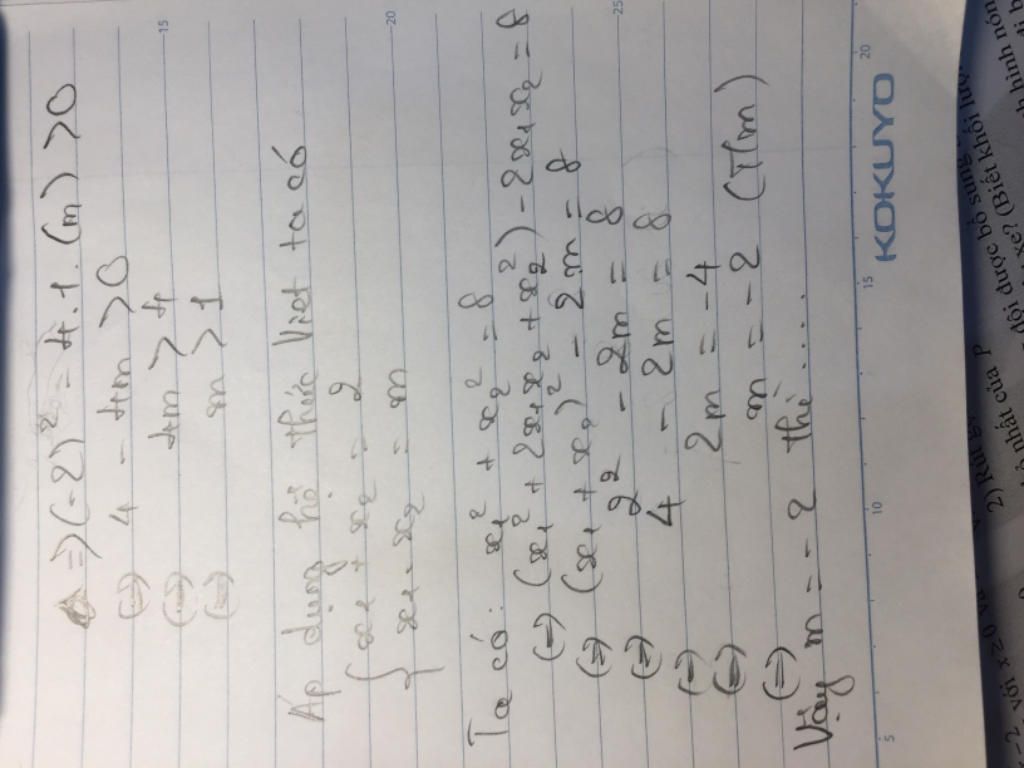 => (-2)² = 4.1.(m) > 0
(=) 4 - 4m > 0
(=) 4m > 4
(=) m > 1
Áp dụng hệ thức Viet ta có
{ x₁ + x₂ = 2
x₁ . x₂ = m
Ta có: x₁² + x₂² = 8
(=) (x₁² + 2x₁x₂ + x₂²) - 2x₁x₂ = 8
(=) (x₁ + x₂)² - 2m = 8
(=) 2² - 2m = 8
(=) 4 - 2m = 8
(=) 2m = -4
(=) m = -2 (T/m)
Vậy m = -2 thì....
5 10 15 20
15 20 25
KOKUYO
-2, với x ≥ 0
2) Rút
nhất của P
đội được bổ sung
xe? (Biết khối lượ
hình nón